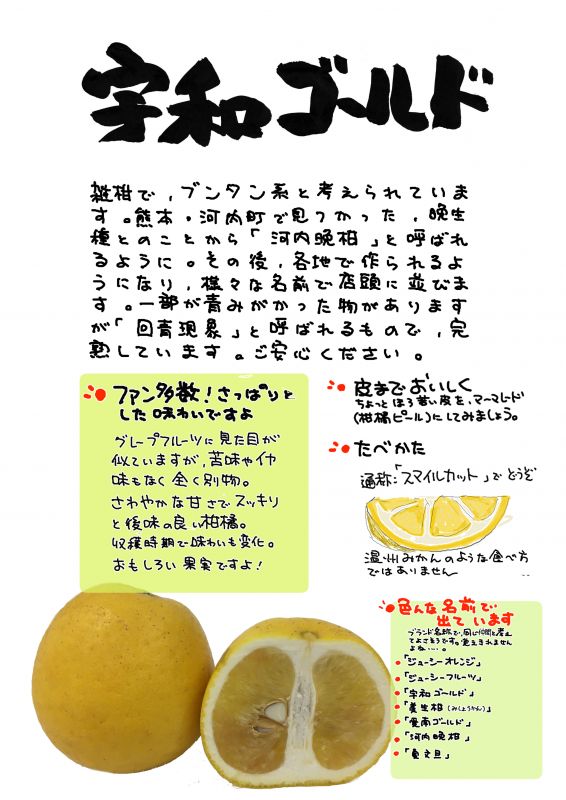 宇和ゴールド
雑柑で，ブンタン系と考えられていま
す。熊本・河内町で見つかった，晩生
種とのことから「河内晩柑」と呼ばれ
るように。その後，各地で作られるよ
うになり，様々な名前で店頭に並びま
す。一部が青みがかった物があります
が「回青現象」と呼ばれるもので，完
熟しています。ご安心ください。
ファン多数！さっぱりと
した味わいですよ
グレープフルーツに見た目が
似ていますが，苦味やイヤ
味もなく全く別物。
さわやかな甘さでスッキリ
と後味の良い柑橘。
収穫時期で味わいも変化。
おもしろい果実ですよ！
皮までおいしく
ちょっとほろ苦い皮を，マーマレード
(柑橘ピール)にしてみましょう。
たべかた
通称：「スマイルカット」でどうぞ
温州みかんのような食べ方
ではありません
色んな名前で
出ています
ブランド名称で，同じ仲間と考え
てよさそうです。覚えきれません
よね…。
「ジューシーオレンジ」
「ジューシーフルーツ」
「宇和ゴールド」
「美生柑(みしょうかん)」
「愛南ゴールド」
「河内晩柑」
「夏文旦」